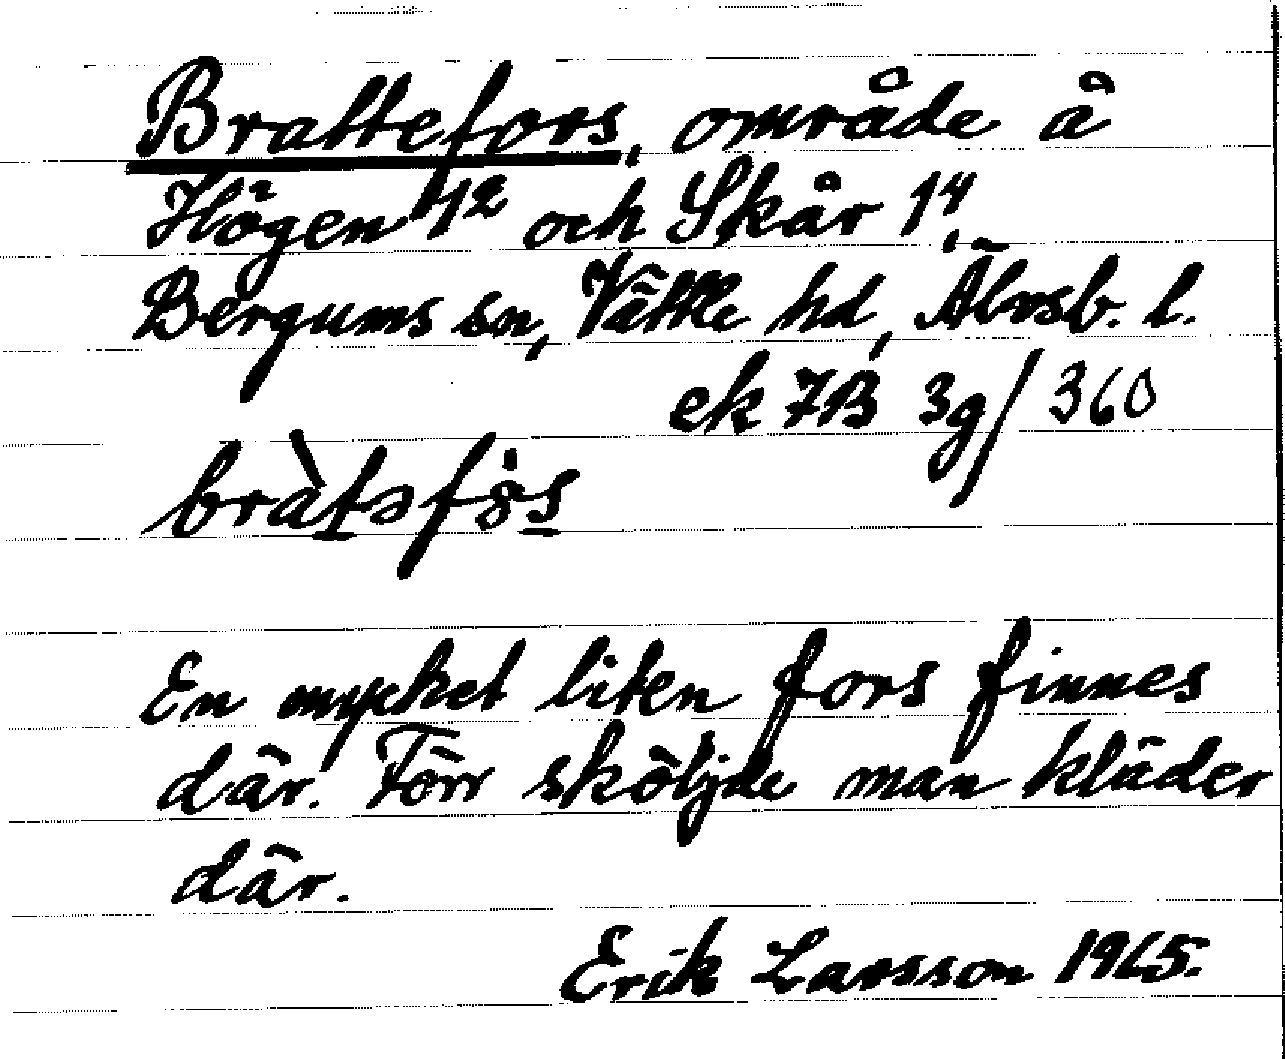 Brattefors, område å
Högen 1² och Skår 1⁴,
Bergums sn, Vättle hd, Älvsb. l.
ek 7B 3g/360
bràtəfɷ̀s
En mycket liten fors finnes
där. Förr sköljde man kläder
där.
Erik Larsson 1965.